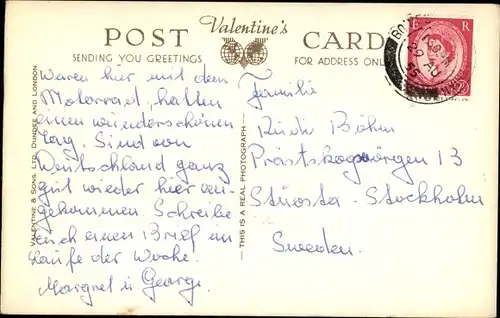 POST Valentine's CARD
SENDING YOU GREETINGS FOR ADDRESS ONLY
Waren hier mit dem
Motorrad, hatten
einen wunderschönen
Tag. Sind von
Deutschland ganz
gut wieder hier an-
gekommen. Schreibe
euch einen Brief im
Laufe der Woche.
Margret u. George.
Familie
Rudi Böhm
13
Stuvsta - Stockholm
Sweden.
VALENTINE & SONS, LTD. DUNDEE AND LONDON.
THIS IS A REAL PHOTOGRAPH
E R
29 AU
55